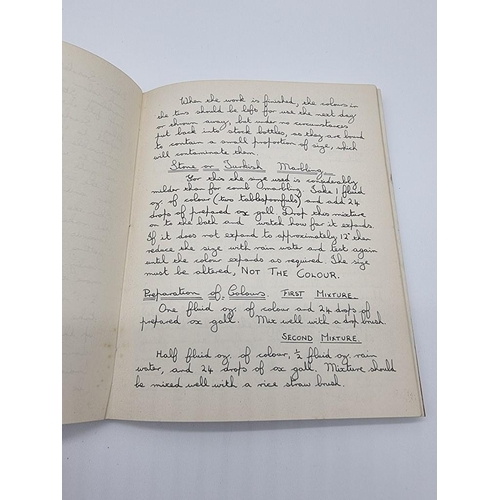 When the work is finished, the colours in
the tins should be left for use the next day
or thrown away, but under no circumstances
put back into stock bottles, as they are bound
to contain a small proportion of size, which
will contaminate them.
Stone or Turkish Marbling
For this the size used is considerably
milder than for comb marbling. Take 1 fluid
oz. of colour (two tablespoonfuls) and add 24
drops of prepared ox gall. Drop this mixture
on to the bath and watch how far it expands.
If it does not expand to approximately 12" then
reduce the size with rain water and test again
until the colour expands as required. The size
must be altered, NOT THE COLOUR.
Preparation of Colours. FIRST MIXTURE.
One fluid oz. of colour and 24 drops of
prepared ox gall. Mix well with a dop brush.
SECOND MIXTURE.
Half fluid oz. of colour, ½ fluid oz. rain
water, and 24 drops of ox gall. Mixture should
be mixed well with a rice straw brush.